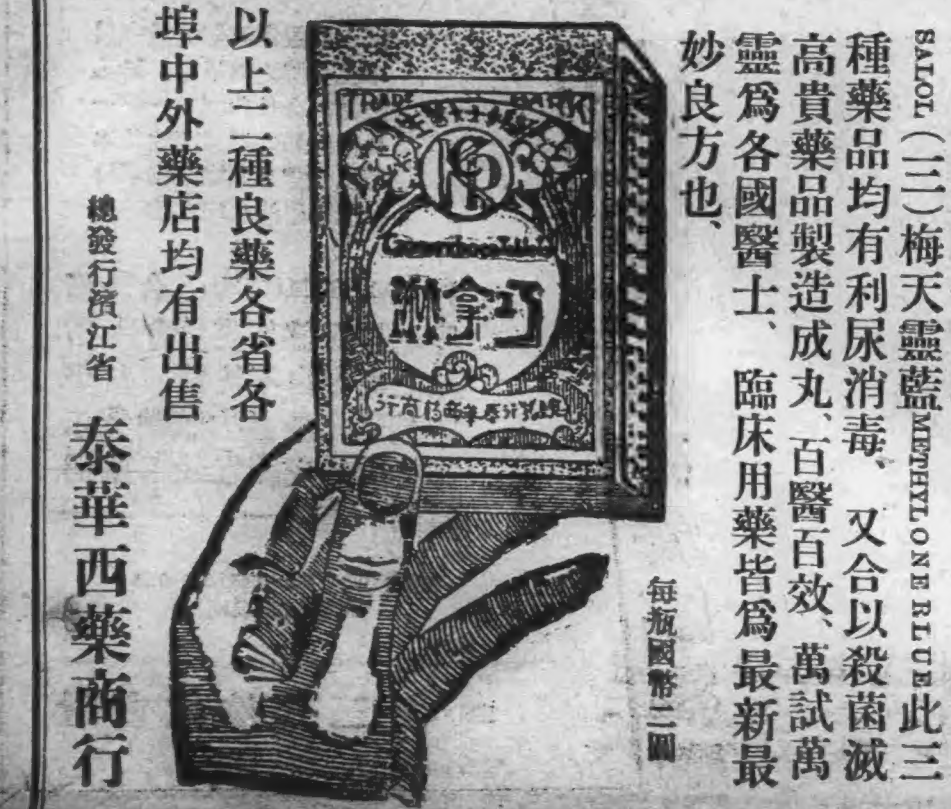 SALOL（三）梅天靈藍METHYLONE RLUE此三
種藥品均有利尿消毒、又合以殺菌滅
高貴藥品製造成丸、百醫百效、萬試萬
靈爲各國醫士、臨床用藥皆爲最新最
妙良方也、
每瓶國幣二圓
TRADE MARK
巧拿淋
以上二種良藥各省各
埠中外藥店均有出售
總發行濱江省 泰華西藥商行